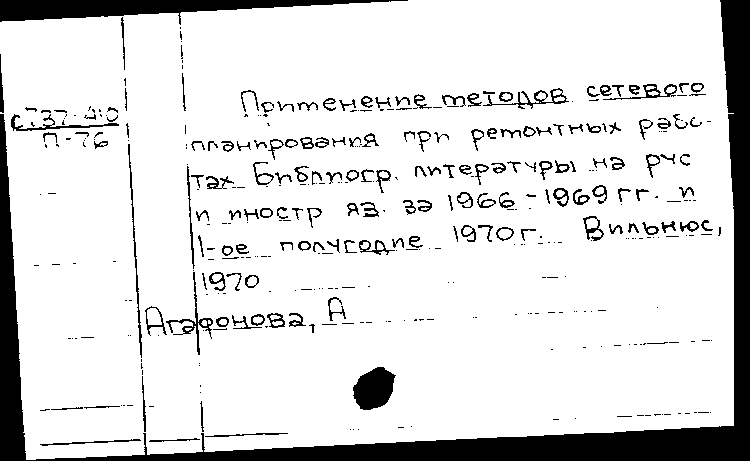 Применение методов сетевого
с737-410
П-76
планирования при ремонтных рабо-
тах Библиогр. литературы на рус
и иностр яз. за 1966-1969 гг. и
1-ое полугодие 1970 г. Вильнюс,
1970
Агафонова, А